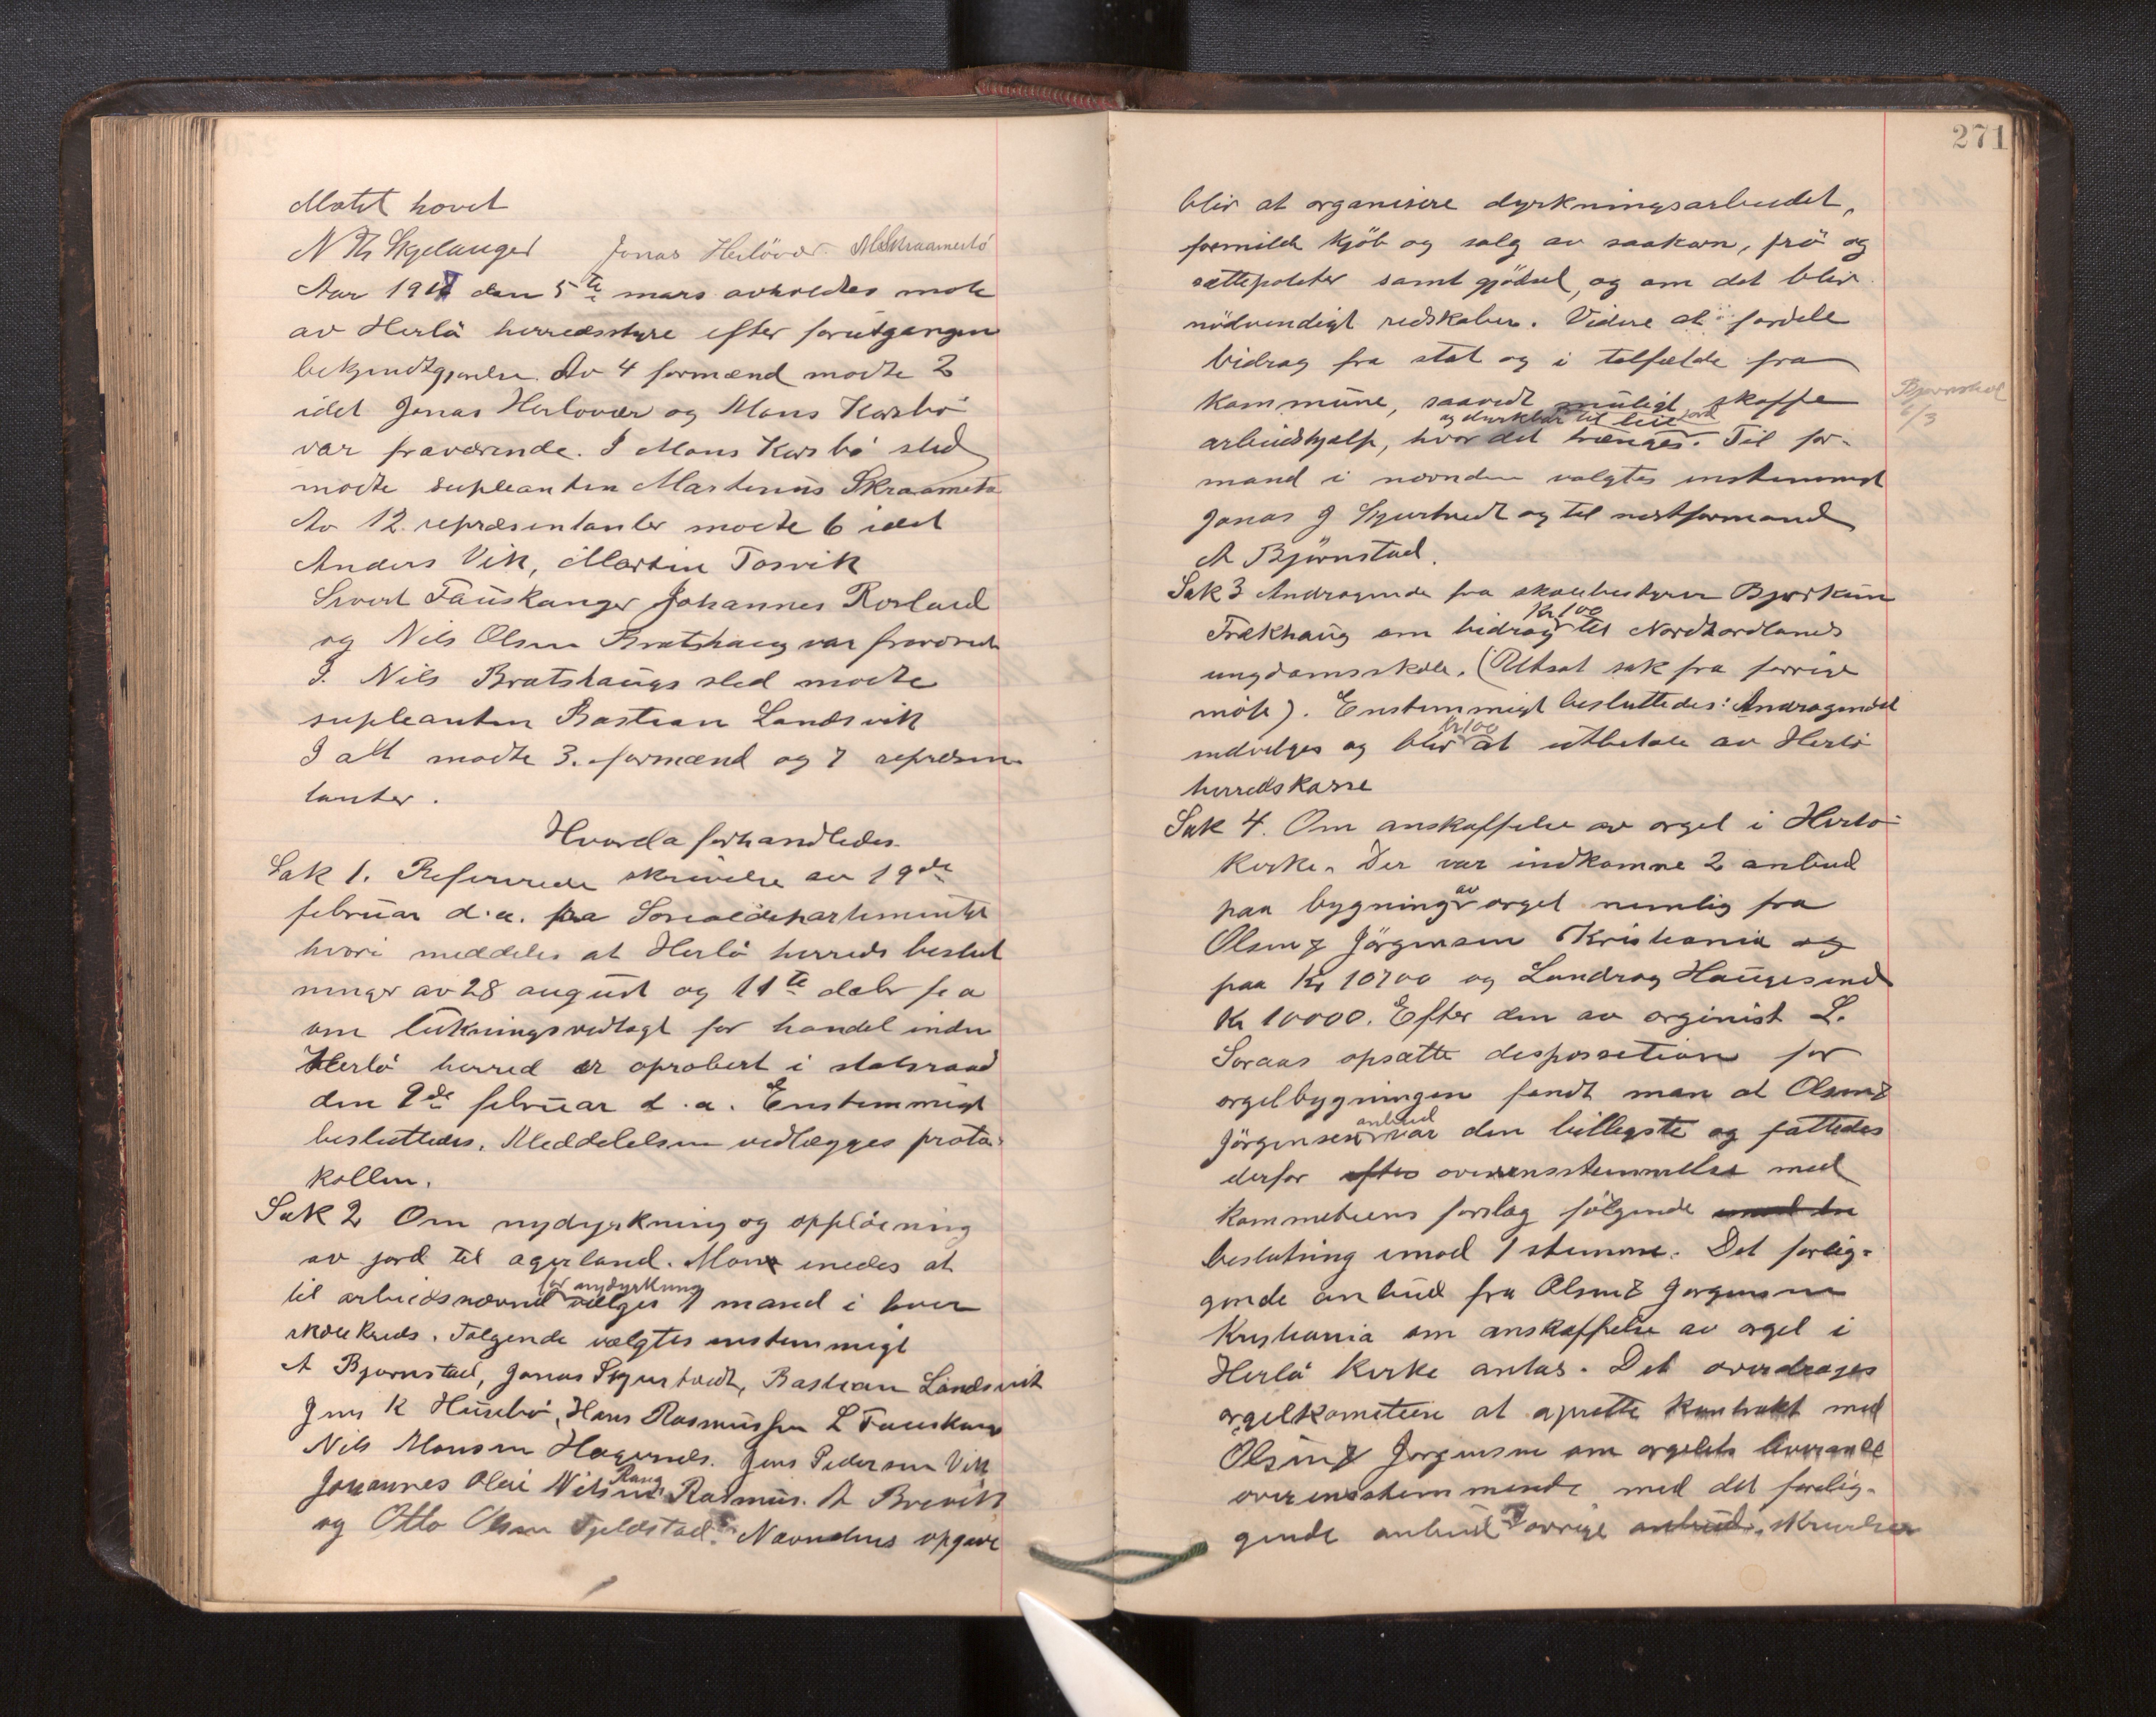 Møtet hævet
N Th Skjelanger Jonas Herløvær. M Skraamestø
Aar 1917 den 5te mars avholdtes møte
av Herlø herredsstyre efter forutgangen
bekjendtgjørelse. Av 4 formænd mødte 2
idet Jonas Herløvær og Mons Karsbø
var fraværende. I Mons Karsbø sted
mødte supleanten Martinus Skraamestø
Av 12 repræsentanter mødte 6 idet
Anders Vik, Martin Tosvik
Sivert Fauskanger Johannes Rosland
og Nils Olsen Bratshaug var fraværende
I. Nils Bratshaugs sted mødte
supleanten Bastian Landsvik
I alt mødte 3. formænd og 7 repræsen-
tanter.
Hvorda forhandledes
Sak 1. Refererede skrivelse av 19de
februar d.a. fra Socialdepartementet
hvori meddeles at Herlø herreds beslut
ninger av 28 august og 11te decbr f a
om lukningsvedtægt for handel inden
Herlø herred er aprobert i statsraad
den 9de februar d.a. Enstemmigt
besluttedes. Meddelelsen vedlægges proto-
kollen.
Sak 2 Om nydyrkning og oppløining
av jord til agerland. Man enedes at
til arbeidsnævnd for nydyrkning vælges 1 mand i hver
skolekreds. Følgende valgtes enstemmigt
A Bjørnstad, Jonas Skjurtvedt, Bastian Landsvik
Jens K Husebø, Hans Rasmussen L Fauskang
Nils Monsen Hagenæs. Jens Pedersen Vik
Johannes Olai Nilsen Rang Rasmus. A Brevik
og Otto Olsen Tjeldstad. Nævndens opgave
271
blir at organisere dyrkningsarbeidet,
formidle kjøb og salg av saakorn, frø og
sættepoteter samt gjødsel, og om det blir
nødvendigt redskaber. Videre at fordele
bidrag fra stat og i tilfælde fra
kommune, saavidt muligt skaffe
Bjørnstad
6/3
arbeidshjælp, og dyrkbar jord til leie hvor det trænges. Til for-
mand i nævnden valgtes enstemmigt
Jonas J Skjurtvedt og til næstformand
A Bjørnstad.
Sak 3 Andragende fra skolebestyrer Bjørkum
Frækhaug om bidrag Kr 100 til Nordhordlands
ungdomsskole. (Utsat sak fra forrige
møte). Enstemmigt besluttedes: Andragendet
indvilges og blir Kr 100 at utbetale av Herlø
herredskasse
Sak 4. Om anskaffelse av orgel i Herlø
kirke. Der var indkomne 2 anbud
paa bygning av orgel nemlig fra
Olsen & Jørgensen Kristiania og
paa Kr 10700 og Landrog Haugesund
Kr 10000. Efter den av orginist L.
Soraas opsatte disposition for
orgelbygningen fandt man at Olsen &
Jørgensens anbud var den billigste og fattedes
derfor efter overensstemmelse med
kommeteens forslag følgende
beslutning imod 1 stemme. Det forlig-
gende anbud fra Olsen & Jørgensen
Kristiania om anskaffelse av orgel i
Herlø kirke antas. Det overdrages
orgelkometeen at oprette kontrakt med
Olsen & Jørgensen om orgelets leverance
overensstemmende med det forelig-
gende anbud I øvrige anbud. skrivelser